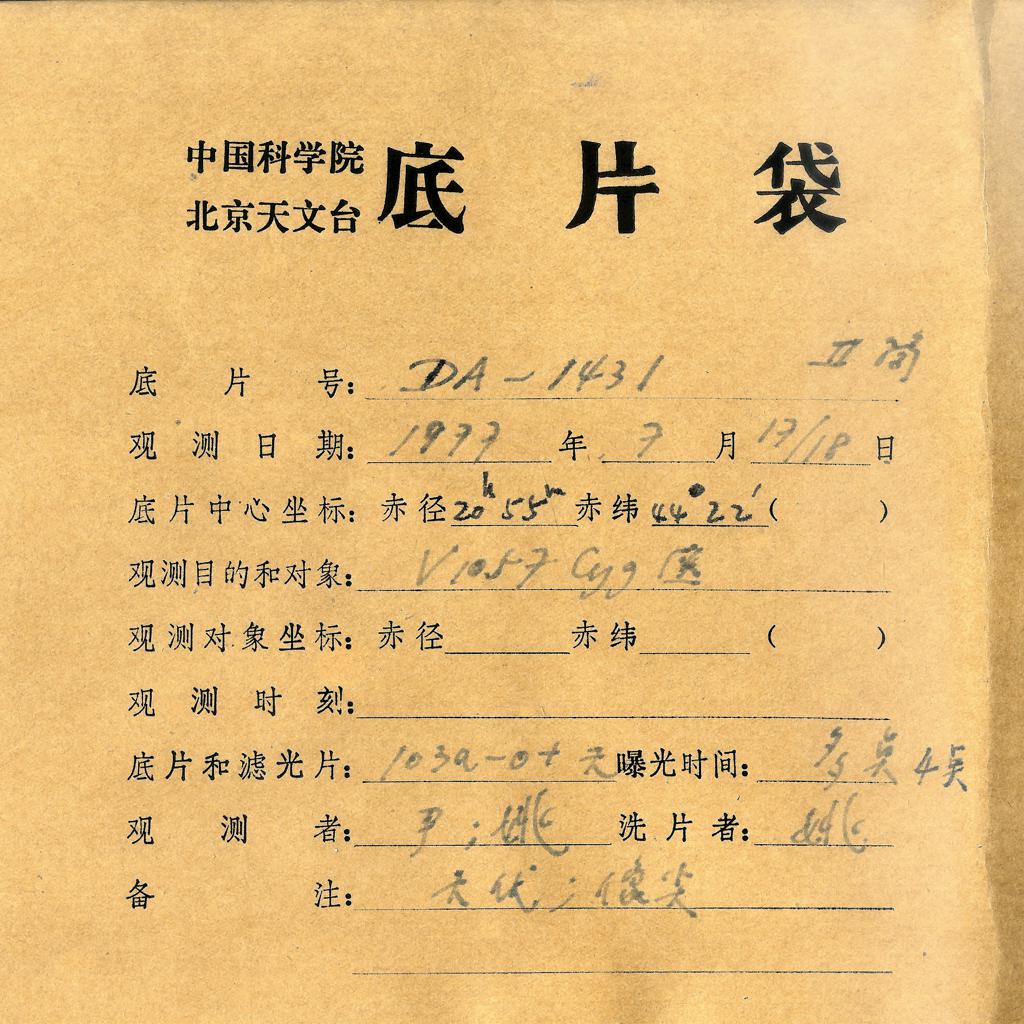 中国科学院
北京天文台 底片袋
底片号: DA-1431 II
观测日期: 1977年 7月 17/18日
底片中心坐标: 赤径 20h 55m 赤纬 44° 22′ ( )
观测目的和对象: V1057 Cyg
观测对象坐标: 赤径 赤纬 ( )
观测时刻:
底片和滤光片: 103a-O+无 曝光时间: 多点 4点
观测者: 尹;姚 洗片者: 姚
备注: 天优;像尖